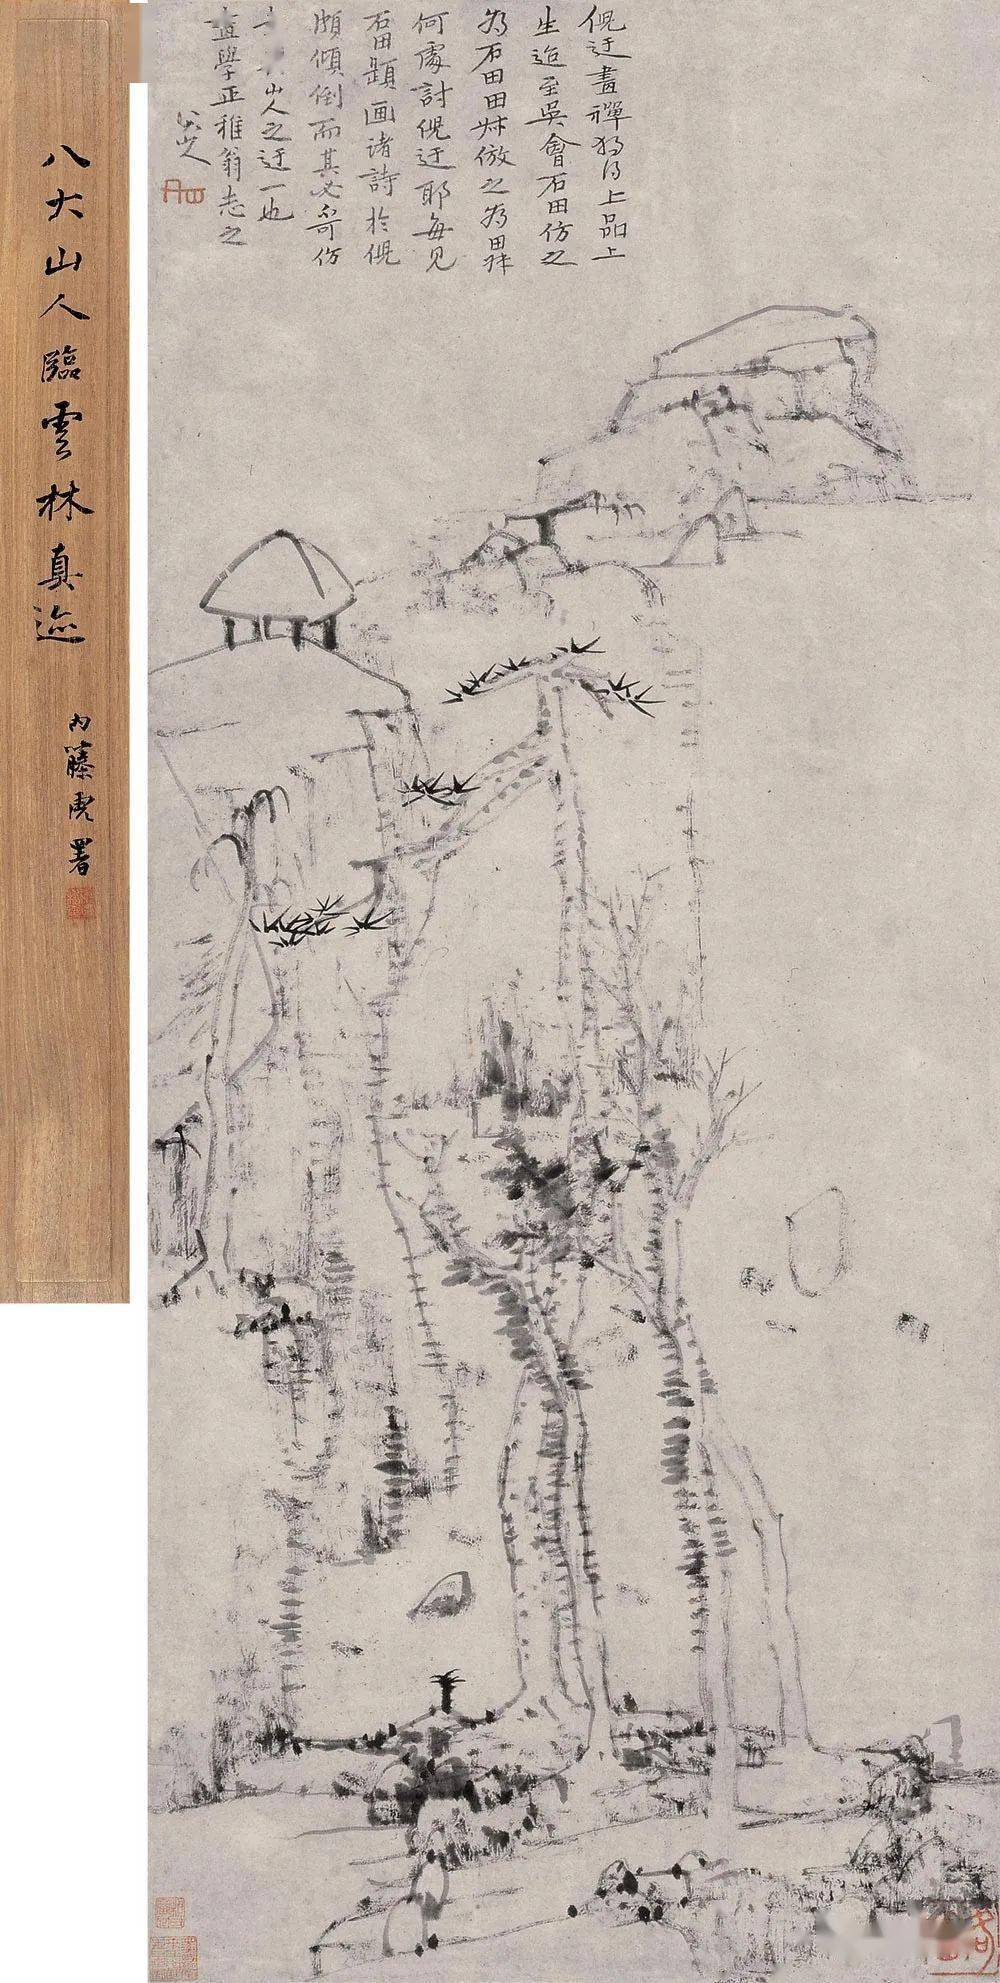 八大山人臨雲林真迹
内藤虎署
倪迂畫禪獨得上品上
生迨至吳會石田仿之
为石田田叔倣之为田叔
何處討倪迂耶每見
石田題画诸詩於倪
頗傾倒而其必寄仿
山人之迂一也
學正稚翁志之
八大山人